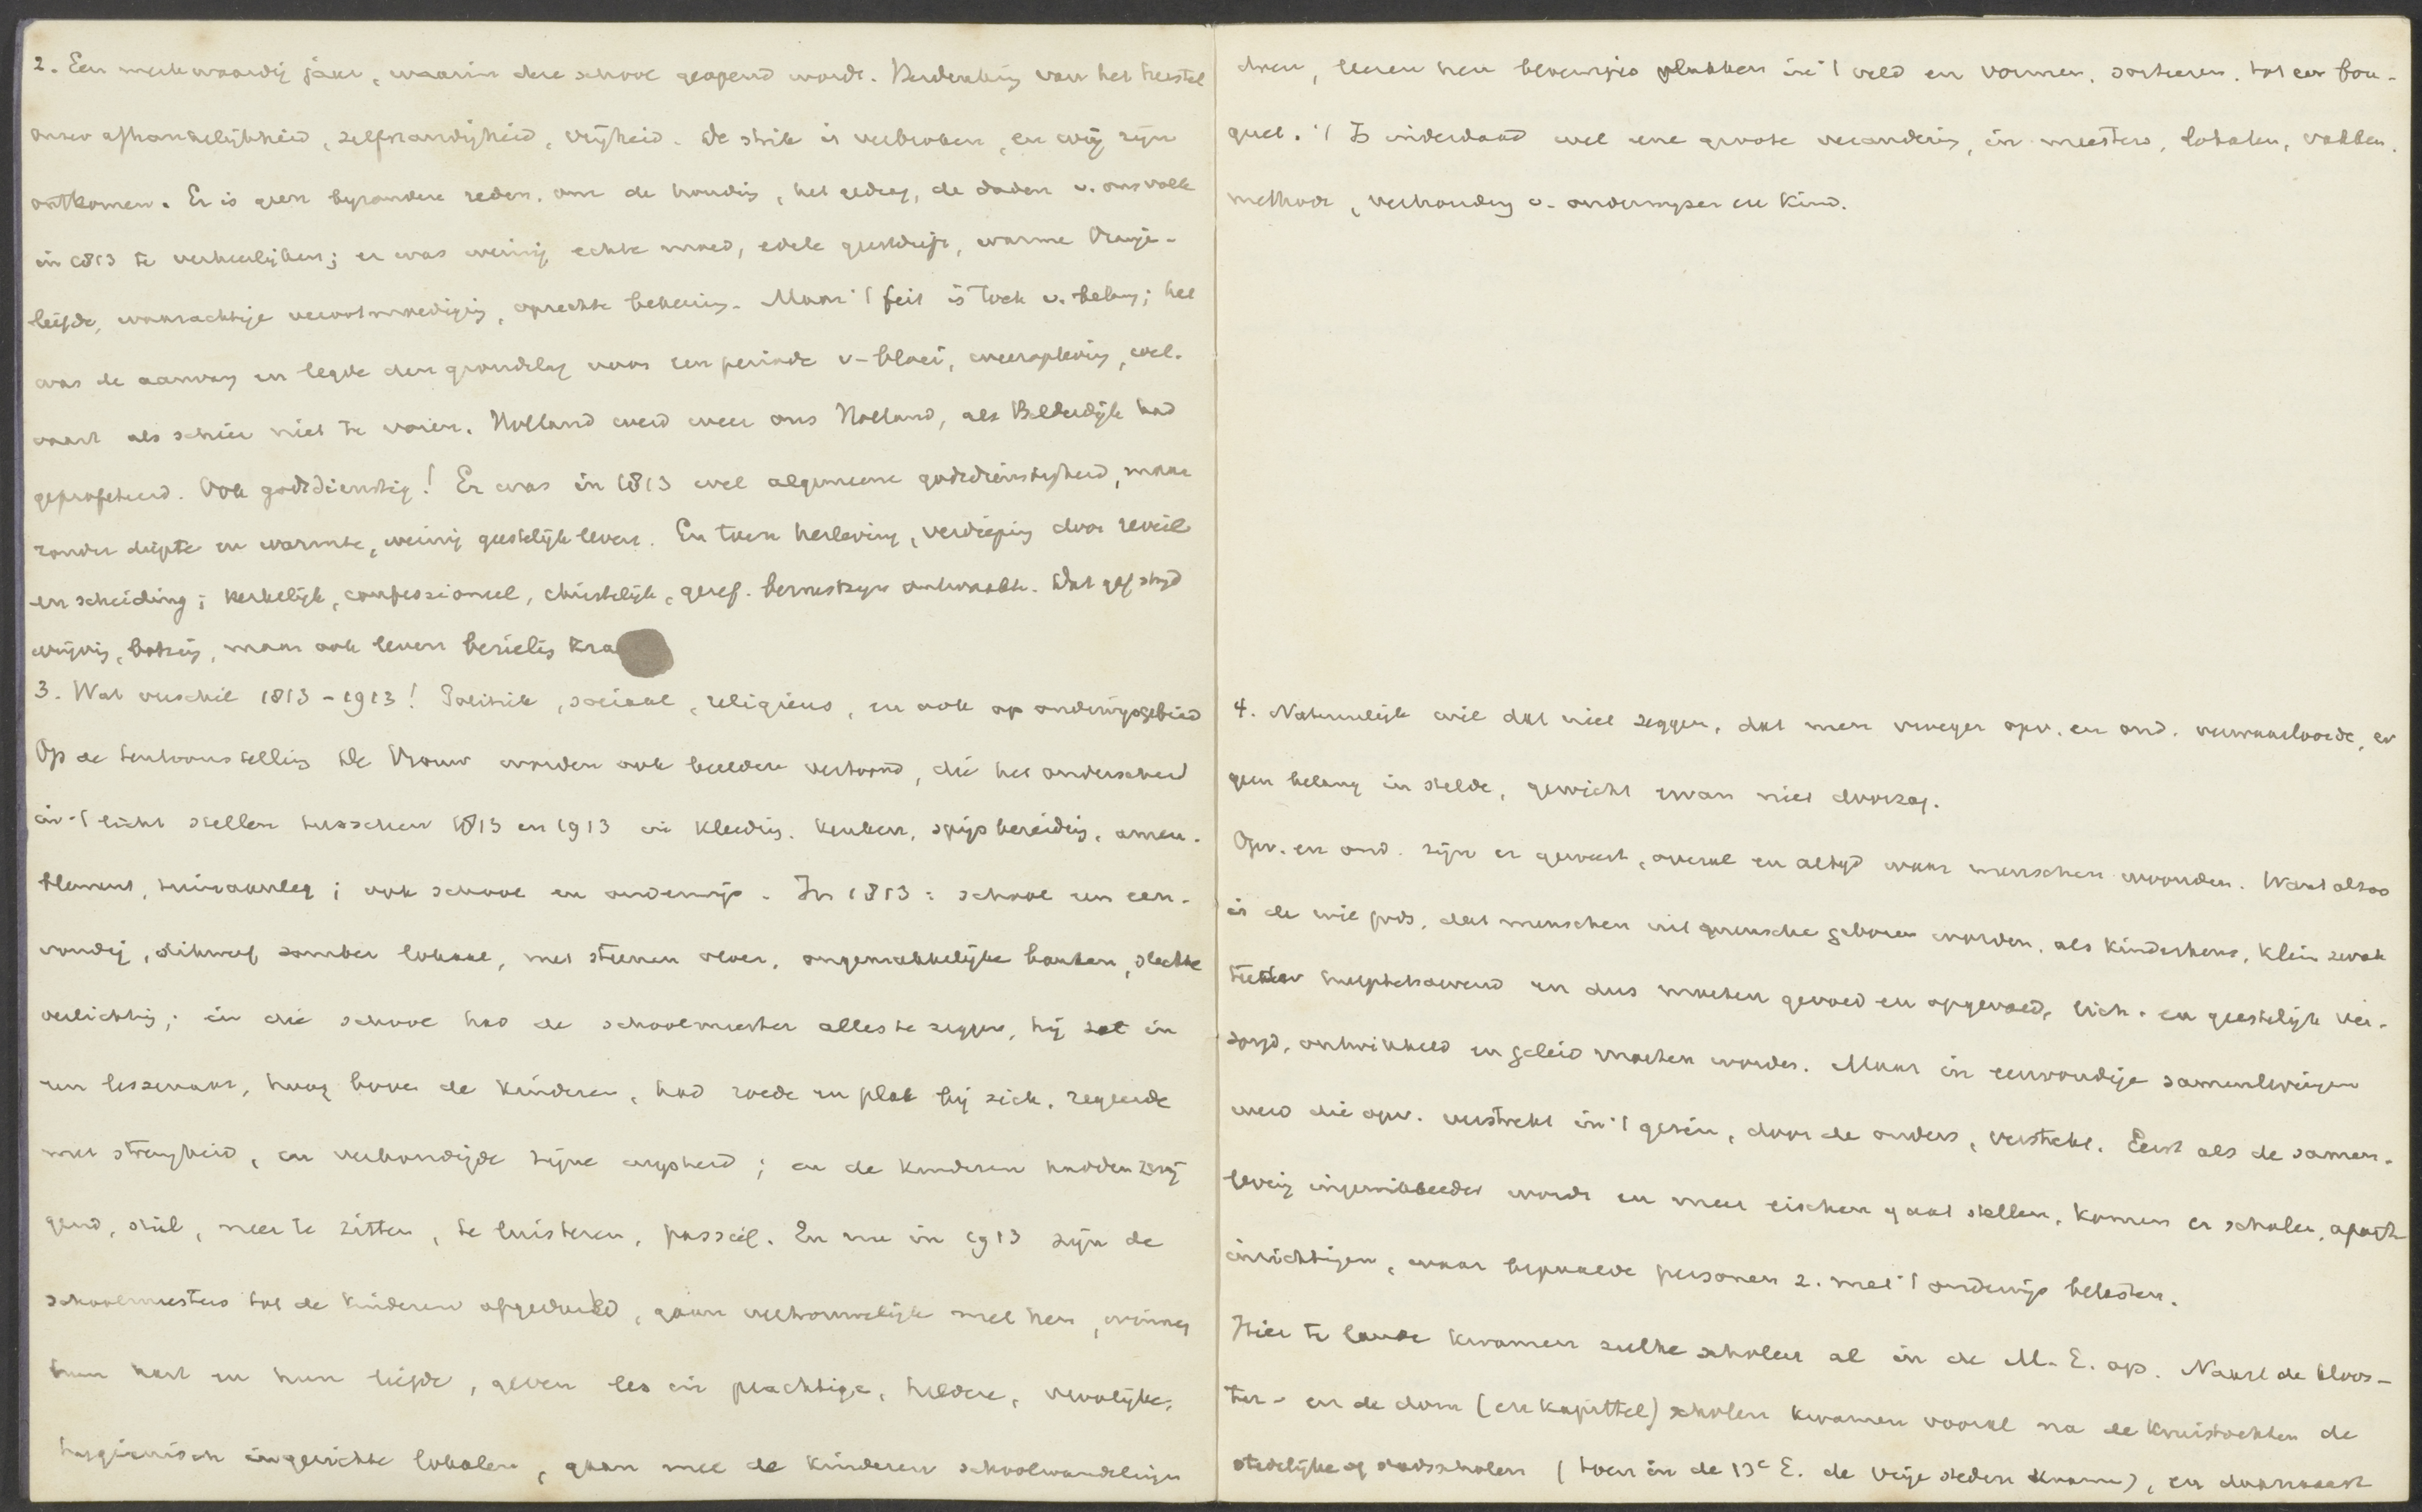 2. Een merkwaardig jaar, waarin deze school geopend wordt. Herdenking van het herstel
onzer afhankelijkheid, zelfstandigheid, vrijheid. De strik is verbroken, en wij zijn
ontkomen. Er is geen byzondere reden, om de houding, het gedrag, de daden v. ons volk
in 1813 te verheerlijken; er was weinig echte moed, edele geestdrift, warme Oranje-
liefde, waarachtige verootmoediging, oprechte bekeering. Maar 't feit is toch v. belang; het
was de aanvang en legde den grondslag voor een periode v. bloei, weeropleving, wel-
vaart als schier niet te voren. Holland werd weer ons Holland, als Bilderdijk had
geprofeteerd. Ook godsdienstig! Er was in 1813 wel algemeene godsdienstigheid, maar
zonder diepte en warmte, weinig geestelijk leven. En toen herleving, verdieping door reveil
en scheiding; kerkelijk, confessioneel, christelijk, geref. bewustzijn ontwaakte. Dat gaf strijd
wrijving, botsing, maar ook leven bezieling kra
3. Wat verschil 1813-1913! Politiek, sociaal, religieus, en ook op onderwijsgebied
Op de tentoonstelling De Vrouw worden ook beelden vertoond, die het onderscheid
in 't licht stellen tusschen 1813 en 1913 in kleeding, keuken, spijsbereiding, ameu-
blement, tuinaanleg; ook school en onderwijs. In 1813: school een een-
voudig, dikwerf somber lokaal, met steenen vloer, ongemakkelijke banken, slechte
verlichting; in die school had de schoolmeester alles te zeggen, hij zat in
een lessenaar, hoog boven de kinderen, had roede en plak bij zich, regeerde
met strengheid, en verkondigde zijne wijsheid; en de kinderen hadden zwij
gend, stil, neer te zitten, te luisteren, passief. En nu in 1913 zijn de
schoolmeesters tot de kinderen afgedaald, gaan vertrouwelijk met hen, winnen
hun hart en hun liefde, geven les in prachtige, heldere, vroolijke,
hygienisch ingerichte lokalen, gaan met de kinderen schoolwandelingen
doen, leeren hen bloempjes plukken in 't veld en vormen, sorteeren, tot een bou-
quet. 't Is inderdaad wel eene groote verandering, in meesters, lokalen, vakken,
methode, verhouding v. onderwyzer en kind.
4. Natuurlijk wil dat niet zeggen, dat men vroeger opv. en ond. verwaarloosde, er
geen belang in stelde, gewicht ervan niet doorzag.
Opv. en ond. zijn er geweest, overal en altyd waar menschen woonden. Want alzoo
is de wil Gods, dat menschen uit menschen geboren worden, als kinderkens, klein zwak
teeder hulpbehoevend en dus moeten gevoed en opgevoed, lich. en geestelijk ver-
zorgd, ontwikkeld en geleid moeten worden. Maar in eenvoudige samenlevingen
werd die opv. verstrekt in 't gezin, door de ouders, verstrekt. Eerst als de samen-
leving ingewikkelder wordt en meer eischen gaat stellen, komen er scholen, aparte
inrichtingen, waar bepaalde personen z. met 't onderwijs belasten.
Hier te lande kwamen zulke scholen al in de M.E. op. Naast de kloos-
ter- en de dom (en kapittel) scholen kwamen vooral na de kruistochten de
stedelijke of stadsscholen (toen in de 13e E. de vrije steden kwamen), en daarnaast